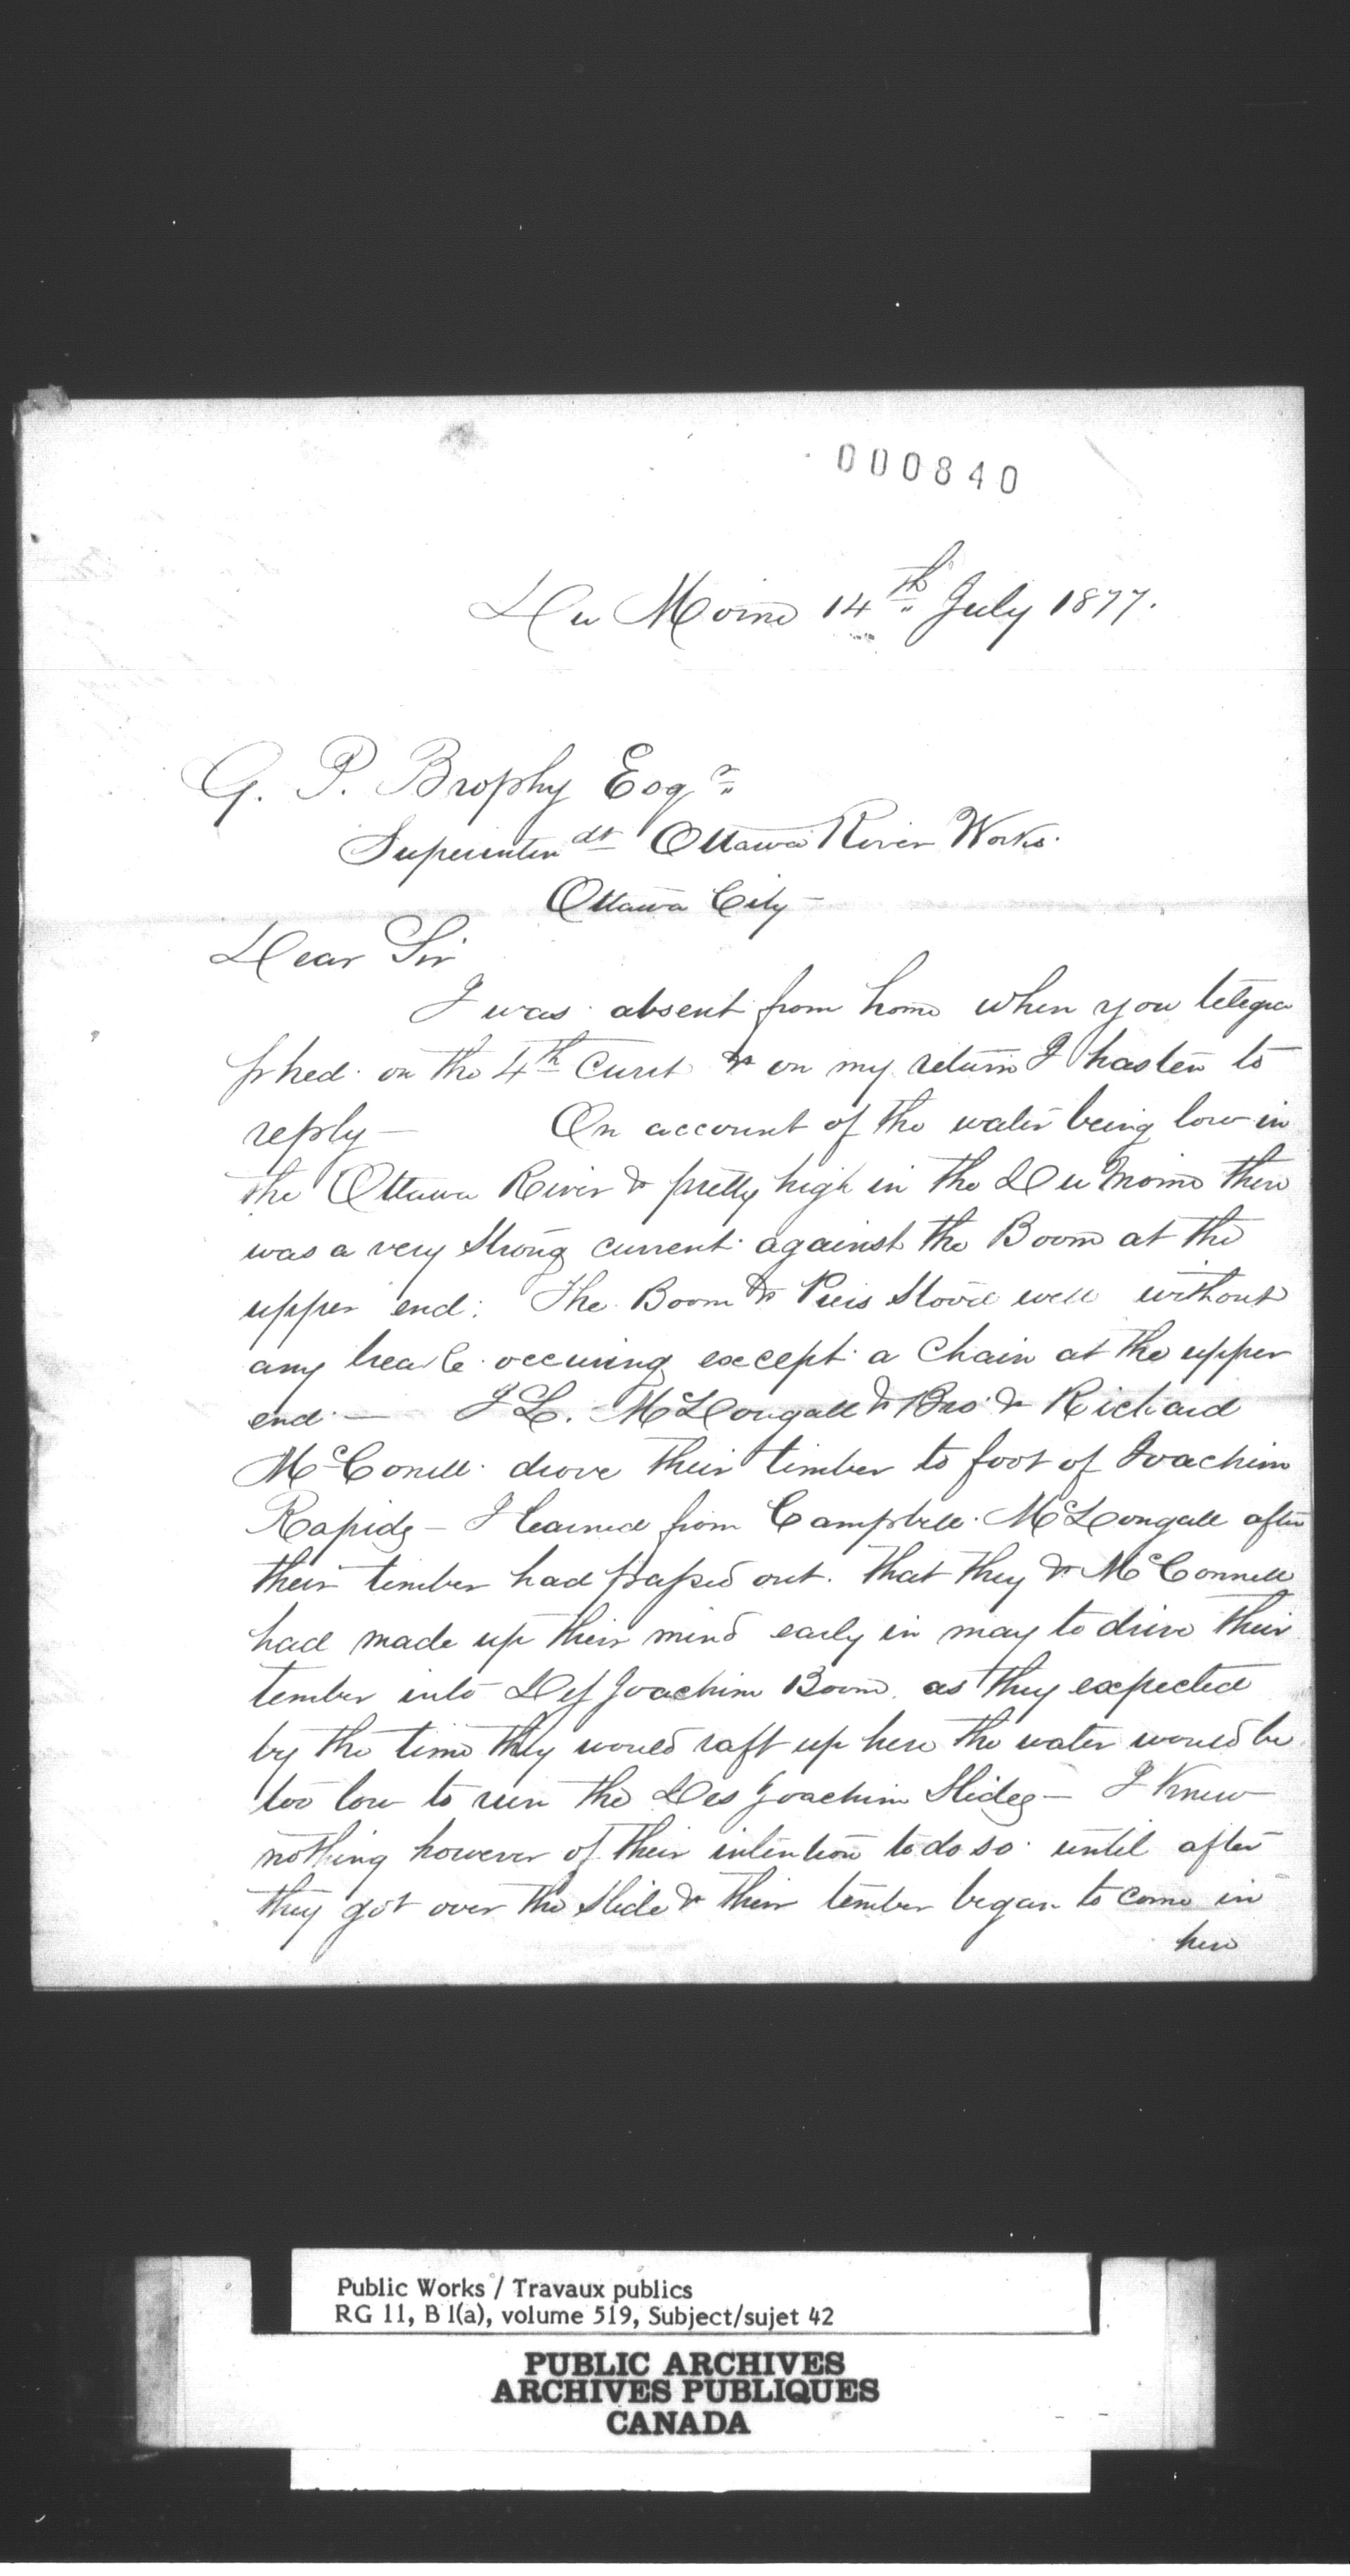 000840
Du Moine 14th July 1877.
G. P. Brophy Esqr
Superintendt Ottawa River Works.
Ottawa City –
Dear Sir
I was absent from home when you telegra
phed on the 4th Curet & on my return I hasten to
reply – On account of the water being low in
the Ottawa River & pretty high in the Du Moine there
was a very strong current against the Boom at the
upper end. The Boom & Piers stood well without
any break occuring except a Chain at the upper
end – J L. McDougall & Bro & Richard
McConell drove their timber to foot of Joachim
Rapids – I learned from Campbell McDougall after
their timber had passed out. that they & McConnell
had made up their mind early in may to drive their
timber into Des Joachim Boom as they expected
by the time they would raft up here the water would be
too low to run the Des Joachim Slides – I Knew
nothing however of their intention to do so until after
they got over the slide & their timber began to come in
here
Public Works / Travaux publics
RG 11, B 1(a), volume 519, Subject/sujet 42
PUBLIC ARCHIVES
ARCHIVES PUBLIQUES
CANADA